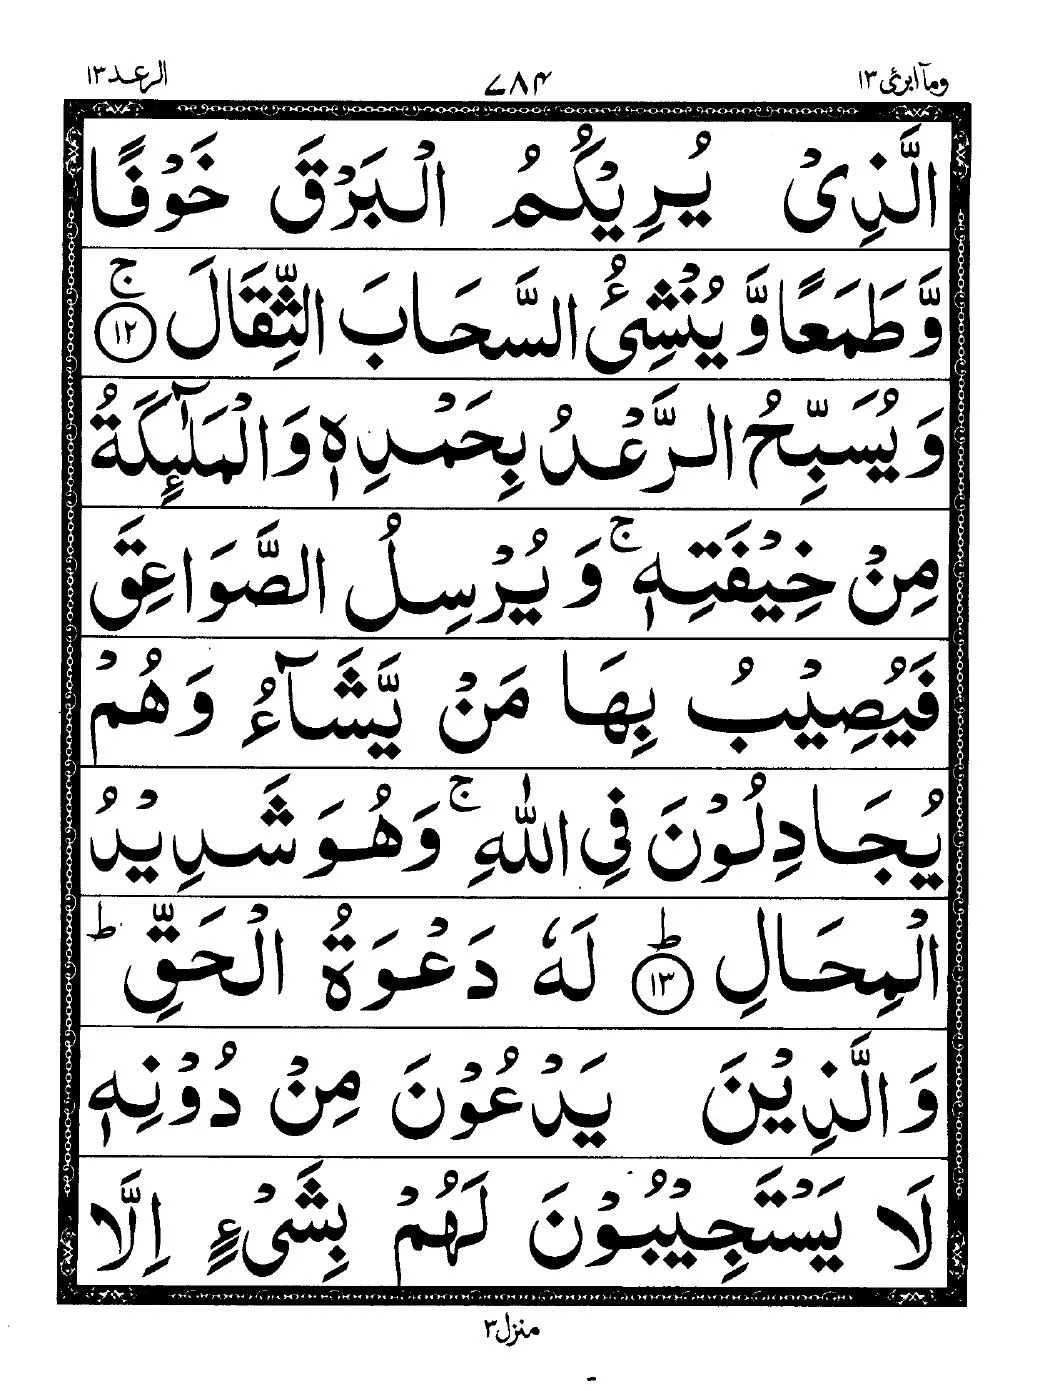 وماۤ ابرئ ١٣
٧٨۴
الرعد ١٣
الَّذِیْ یُرِیْكُمُ الْبَرْقَ خَوْفًا
وَّ طَمَعًا وَّ یُنْشِئُ السَّحَابَ الثِّقَالَ ۚ‏﴿١٢﴾
وَ یُسَبِّحُ الرَّعْدُ بِحَمْدِهٖ وَ الْمَلٰٓىِٕكَةُ
مِنْ خِیْفَتِهٖ ۚ وَ یُرْسِلُ الصَّوَاعِقَ
فَیُصِیْبُ بِهَا مَنْ یَّشَآءُ وَ هُمْ
یُجَادِلُوْنَ فِی اللّٰهِ ۚ وَ هُوَ شَدِیْدُ
الْمِحَالِ ؕ‏﴿١٣﴾ لَهٗ دَعْوَةُ الْحَقِّ ؕ
وَ الَّذِیْنَ یَدْعُوْنَ مِنْ دُوْنِهٖ
لَا یَسْتَجِیْبُوْنَ لَهُمْ بِشَیْءٍ اِلَّا
منزل ٣